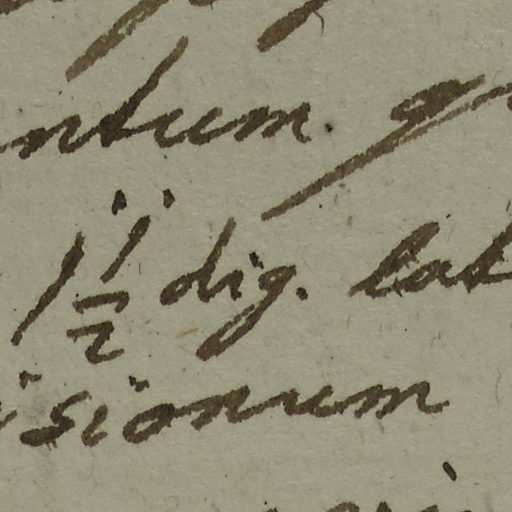 ntum
1 1/2 dig. lat
isionum